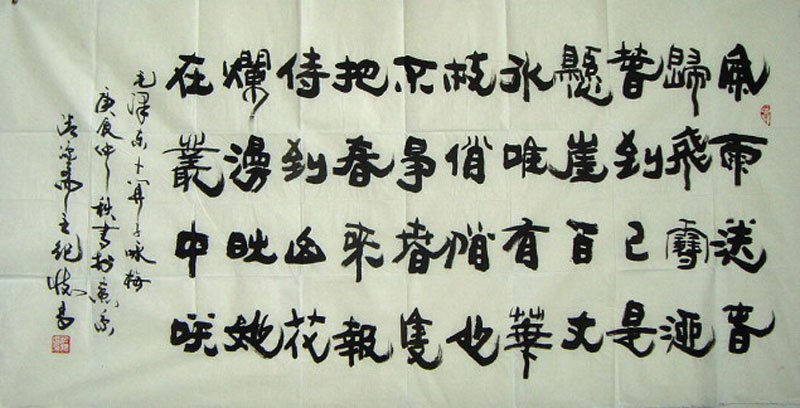 風雨送春
歸飛雪迎
春到已是
懸崖百丈
氷唯有華
枝俏俏也
不爭春隻
把春來報
待到山花
爛漫時她
在叢中咲
毛澤东卜算子咏梅
仲秋書於
主紀